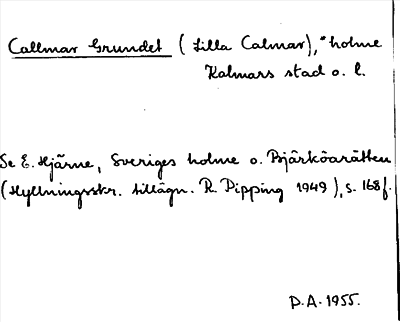 Callmar Grundet (Lilla Calmar), *holme
Kalmars stad o. l.
Se E. Hjärne, Sveriges holme o. Bjärköarätten
(Hyllningsskr. tillägn. R. Pipping 1949), s. 168 f.
P.A. 1955.